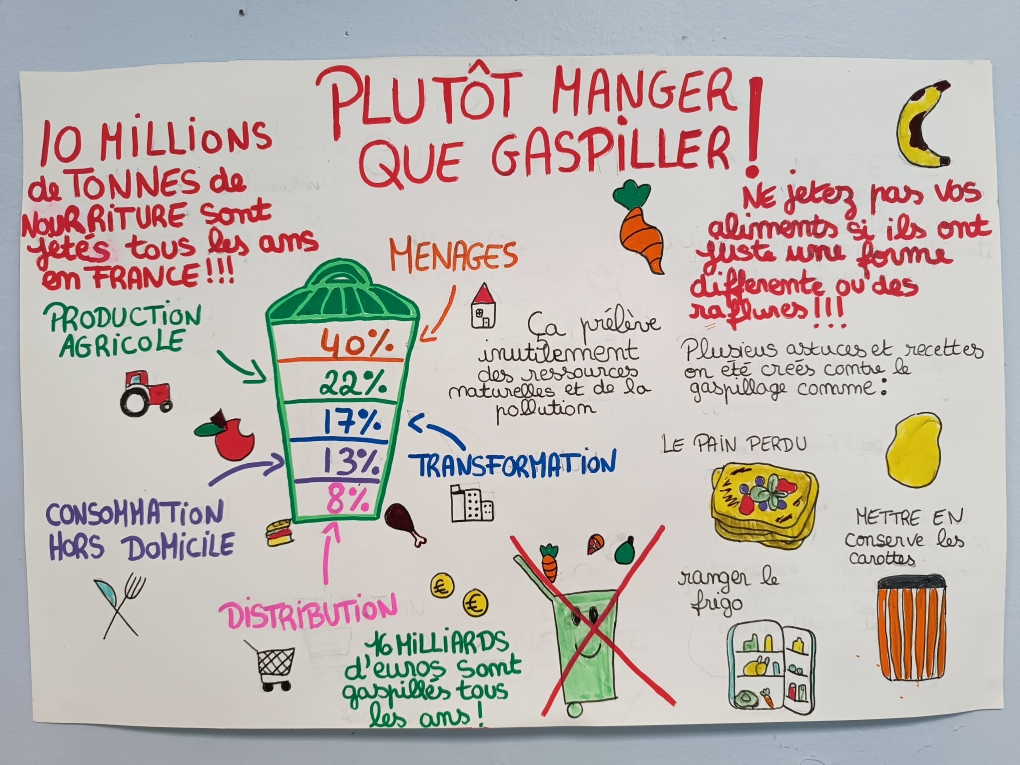 PLUTÔT MANGER
QUE GASPILLER!
10 MILLIONS
de TONNES de
NOURRITURE sont
jetés tous les ans
en FRANCE!!!
MENAGES
PRODUCTION
AGRICOLE
40%
22%
17%
13%
8%
TRANSFORMATION
CONSOMMATION
HORS DOMICILE
DISTRIBUTION
Ça prélève
inutilement
des ressources
naturelles et de la
pollution
€
€
16 MILLIARDS
d'euros sont
gaspillés tous
les ans!
NE jetez pas vos
aliments si ils ont
juste une forme
differente ou des
raflures!!!
Plusieus astuces et recettes
on été creés contre le
gaspillage comme:
LE PAIN PERDU
METTRE EN
conserve les
carottes
ranger le
frigo